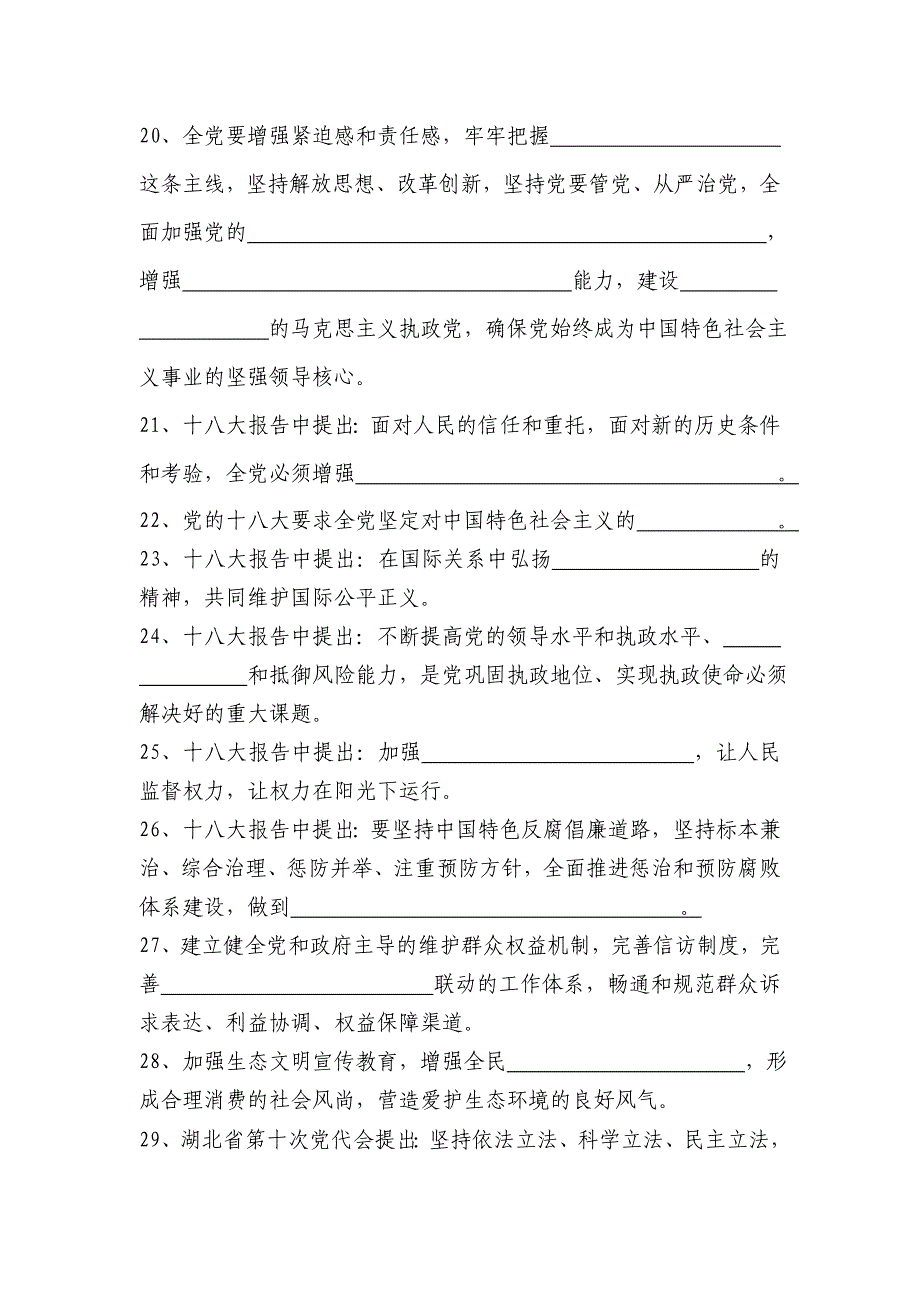 20、全党要增强紧迫感和责任感，牢牢把握____________________
这条主线，坚持解放思想、改革创新，坚持党要管党、从严治党，全
面加强党的________________________________________________，
增强____________________________________能力，建设_________
____________的马克思主义执政党，确保党始终成为中国特色社会主
义事业的坚强领导核心。
21、十八大报告中提出：面对人民的信任和重托，面对新的历史条件
和考验，全党必须增强_______________________________________。
22、党的十八大要求全党坚定对中国特色社会主义的_____________。
23、十八大报告中提出：在国际关系中弘扬___________________的
精神，共同维护国际公平正义。
24、十八大报告中提出：不断提高党的领导水平和执政水平、_____
__________和抵御风险能力，是党巩固执政地位、实现执政使命必须
解决好的重大课题。
25、十八大报告中提出：加强_________________________，让人民
监督权力，让权力在阳光下运行。
26、十八大报告中提出：要坚持中国特色反腐倡廉道路，坚持标本兼
治、综合治理、惩防并举、注重预防方针，全面推进惩治和预防腐败
体系建设，做到____________________________________。
27、建立健全党和政府主导的维护群众权益机制，完善信访制度，完
善_________________________联动的工作体系，畅通和规范群众诉
求表达、利益协调、权益保障渠道。
28、加强生态文明宣传教育，增强全民______________________，形
成合理消费的社会风尚，营造爱护生态环境的良好风气。
29、湖北省第十次党代会提出：坚持依法立法、科学立法、民主立法，